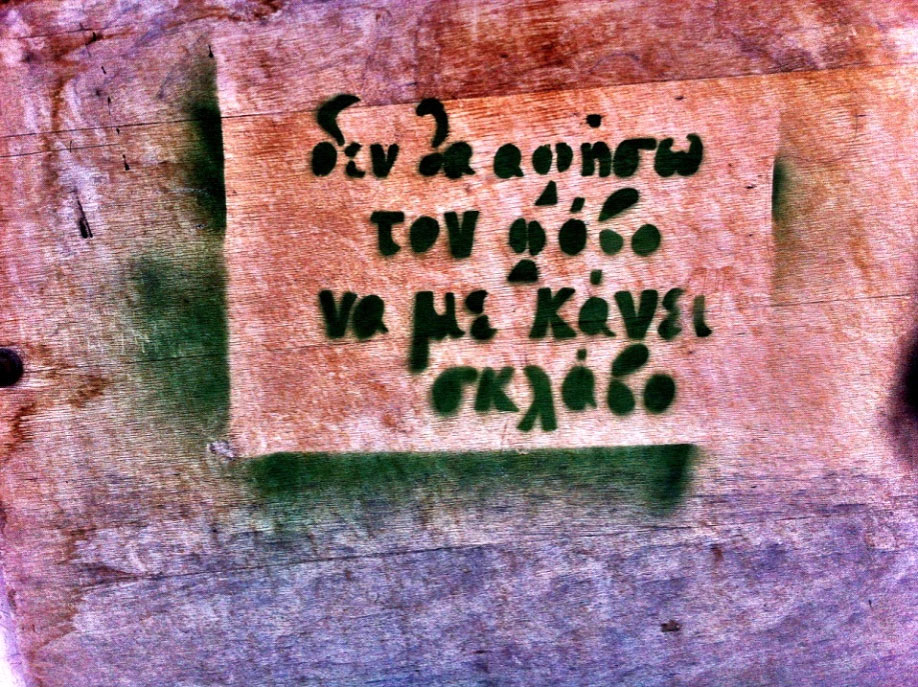 δεν θα αφήσω
τον φόβο
να με κάνει
σκλάβο